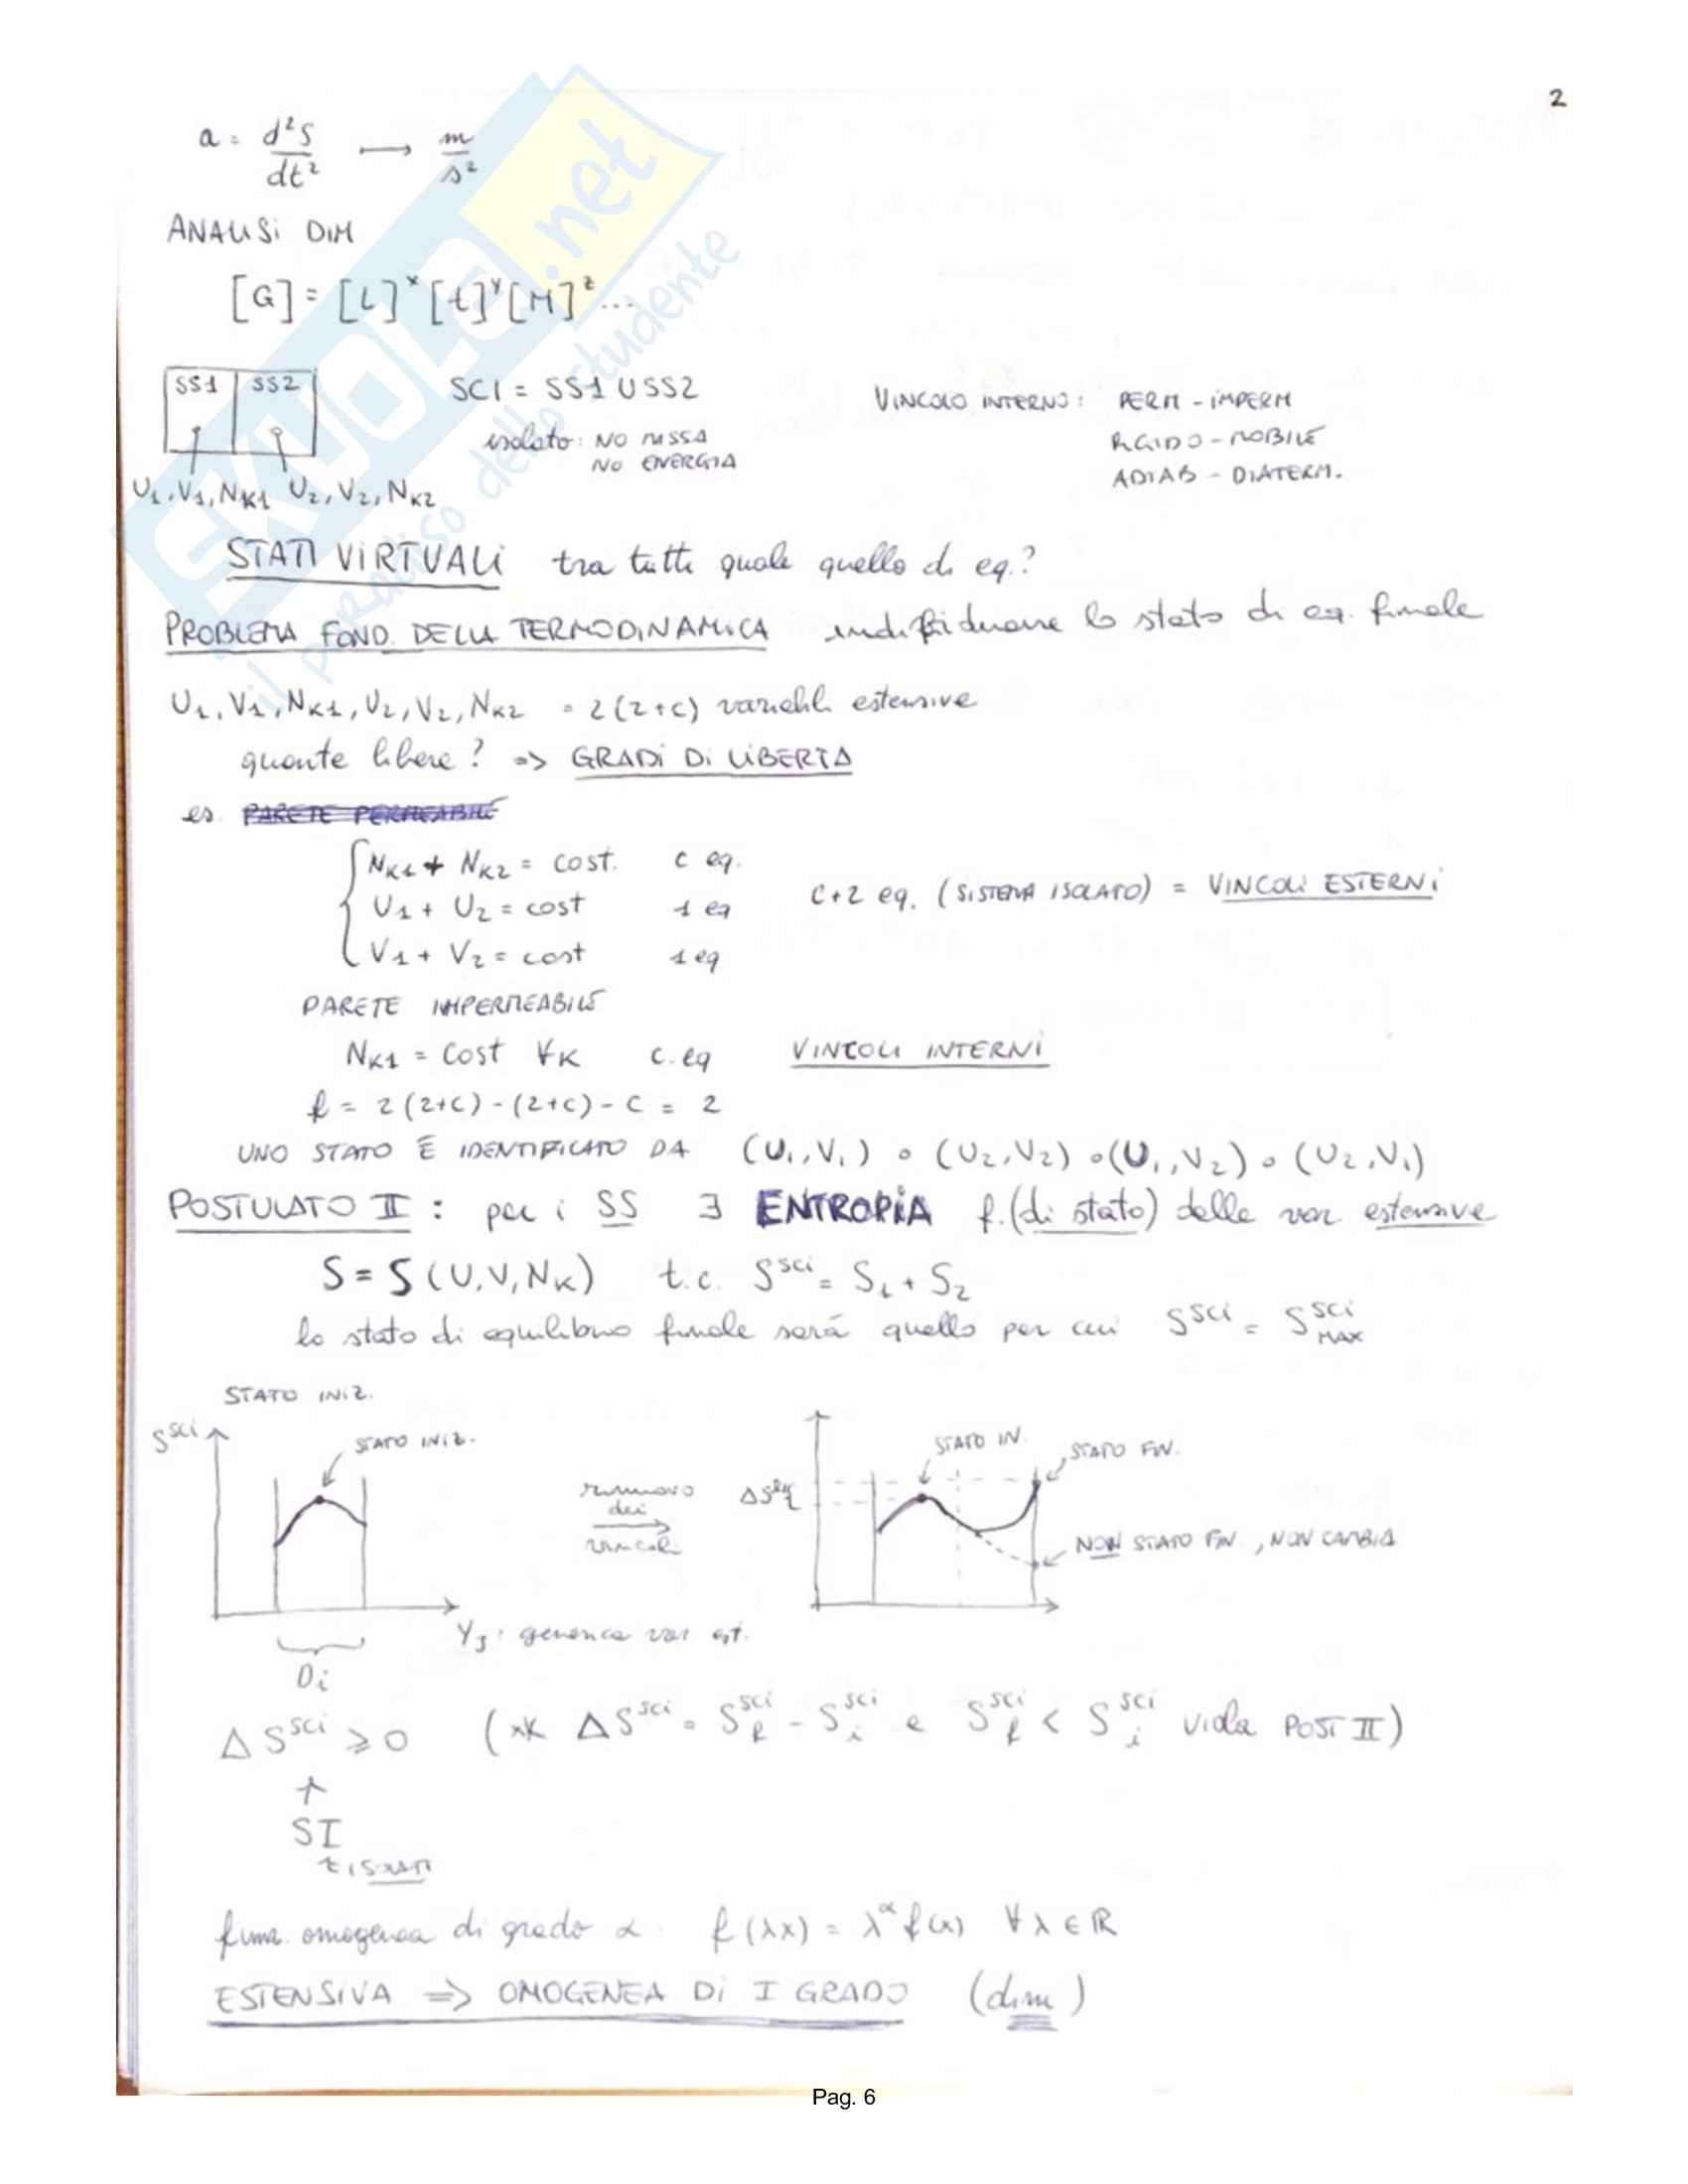 2
a = d²S/dt² ⟼ m/s²
ANALISI DIM
[G] = [L]ˣ [t]ʸ [M]ᶻ ...
SS1 SS2
SCI = SS1 U SS2
isolato: NO MASSA
NO ENERGIA
VINCOLO INTERNO: PERM - IMPERM
RIGIDO - MOBILE
ADIAB - DIATERM.
U₁, V₁, N_K1 U₂, V₂, N_K2
STATI VIRTUALI tra tutti quale quello di eq.?
PROBLEMA FOND. DELLA TERMODINAMICA individuare lo stato di eq. finale
U₁, V₁, N_K1, U₂, V₂, N_K2 = 2(2+C) variabili estensive
quante libere? => GRADI DI LIBERTA
es. PARETE PERMEABILE
N_K1 + N_K2 = cost. C eq.
U₁ + U₂ = cost 1 eq
V₁ + V₂ = cost 1 eq
C+2 eq. (SISTEMA ISOLATO) = VINCOLI ESTERNI
PARETE IMPERMEABILE
N_K1 = cost ∀K C. eq VINCOLI INTERNI
f = 2(2+C) - (2+C) - C = 2
UNO STATO È IDENTIFICATO DA (U₁,V₁) o (U₂,V₂) o (U₁,V₂) o (U₂,V₁)
POSTULATO II : per i SS ∃ ENTROPIA f. (di stato) delle var. estensive
S = S(U,V,N_K) t.c. S^SCI = S₁ + S₂
lo stato di equilibrio finale sarà quello per cui S^SCI = S^SCI_MAX
STATO INIZ.
S^SCI
STATO INIZ.
rimuovo
dei
vincoli
STATO IN.
STATO FIN.
NON STATO FIN, NON CAMBIA
Y_J : generica var est.
Di
ΔS^SCI ⩾ 0 (xk ΔS^SCI = S_f^SCI - S_i^SCI e S_f^SCI < S_i^SCI viola POST II)
↑
SI
funz. omogenea di grado α: f(λx) = λ^α f(x) ∀ λ ∈ ℝ
ESTENSIVA => OMOGENEA DI I GRADO (dim)
SKUOLA.net
il paradiso dello studente
Pag. 6